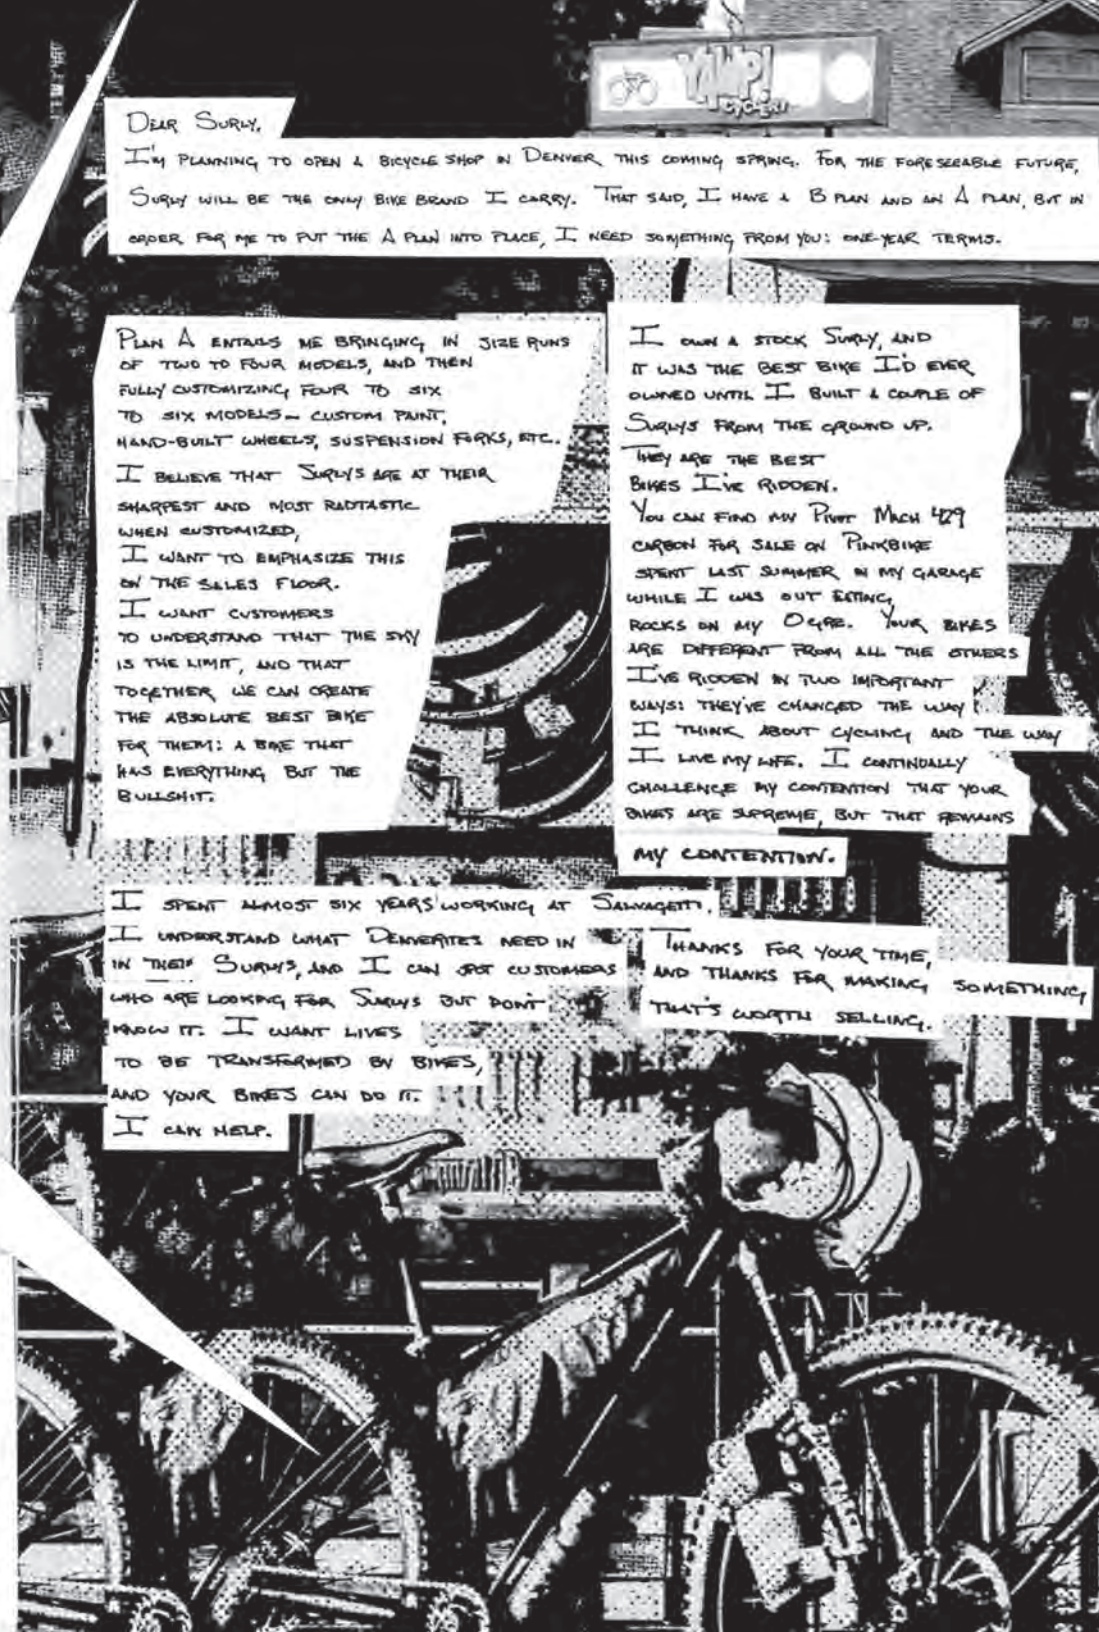 YAWP!
CYCLERY
DEAR SURLY,
I'M PLANNING TO OPEN A BICYCLE SHOP IN DENVER THIS COMING SPRING. FOR THE FORESEEABLE FUTURE,
SURLY WILL BE THE ONLY BIKE BRAND I CARRY. THAT SAID, I HAVE A B PLAN AND AN A PLAN, BUT IN
ORDER FOR ME TO PUT THE A PLAN INTO PLACE, I NEED SOMETHING FROM YOU: ONE-YEAR TERMS.
PLAN A ENTAILS ME BRINGING IN SIZE RUNS
OF TWO TO FOUR MODELS, AND THEN
FULLY CUSTOMIZING FOUR TO SIX
TO SIX MODELS— CUSTOM PAINT,
HAND-BUILT WHEELS, SUSPENSION FORKS, ETC.
I BELIEVE THAT SURLYS ARE AT THEIR
SHARPEST AND MOST RADTASTIC
WHEN CUSTOMIZED,
I WANT TO EMPHASIZE THIS
ON THE SALES FLOOR.
I WANT CUSTOMERS
TO UNDERSTAND THAT THE SKY
IS THE LIMIT, AND THAT
TOGETHER WE CAN CREATE
THE ABSOLUTE BEST BIKE
FOR THEM: A BIKE THAT
HAS EVERYTHING BUT THE
BULLSHIT.
I OWN A STOCK SURLY, AND
IT WAS THE BEST BIKE I'D EVER
OWNED UNTIL I BUILT A COUPLE OF
SURLYS FROM THE GROUND UP.
THEY ARE THE BEST
BIKES I'VE RIDDEN.
YOU CAN FIND MY PIVOT MACH 429
CARBON FOR SALE ON PINKBIKE
SPENT LAST SUMMER IN MY GARAGE
WHILE I WAS OUT EATING
ROCKS ON MY OGRE. YOUR BIKES
ARE DIFFERENT FROM ALL THE OTHERS
I'VE RIDDEN IN TWO IMPORTANT
WAYS: THEY'VE CHANGED THE WAY
I THINK ABOUT CYCLING AND THE WAY
I LIVE MY LIFE. I CONTINUALLY
CHALLENGE MY CONTENTION THAT YOUR
BIKES ARE SUPREME, BUT THAT REMAINS
MY CONTENTION.
I SPENT ALMOST SIX YEARS WORKING AT SALVAGETTI.
I UNDERSTAND WHAT DENVERITES NEED IN
IN THEIR SURLYS, AND I CAN SPOT CUSTOMERS
WHO ARE LOOKING FOR SURLYS BUT DON'T
KNOW IT. I WANT LIVES
TO BE TRANSFORMED BY BIKES,
AND YOUR BIKES CAN DO IT.
I CAN HELP.
THANKS FOR YOUR TIME,
AND THANKS FOR MAKING SOMETHING
THAT'S WORTH SELLING.